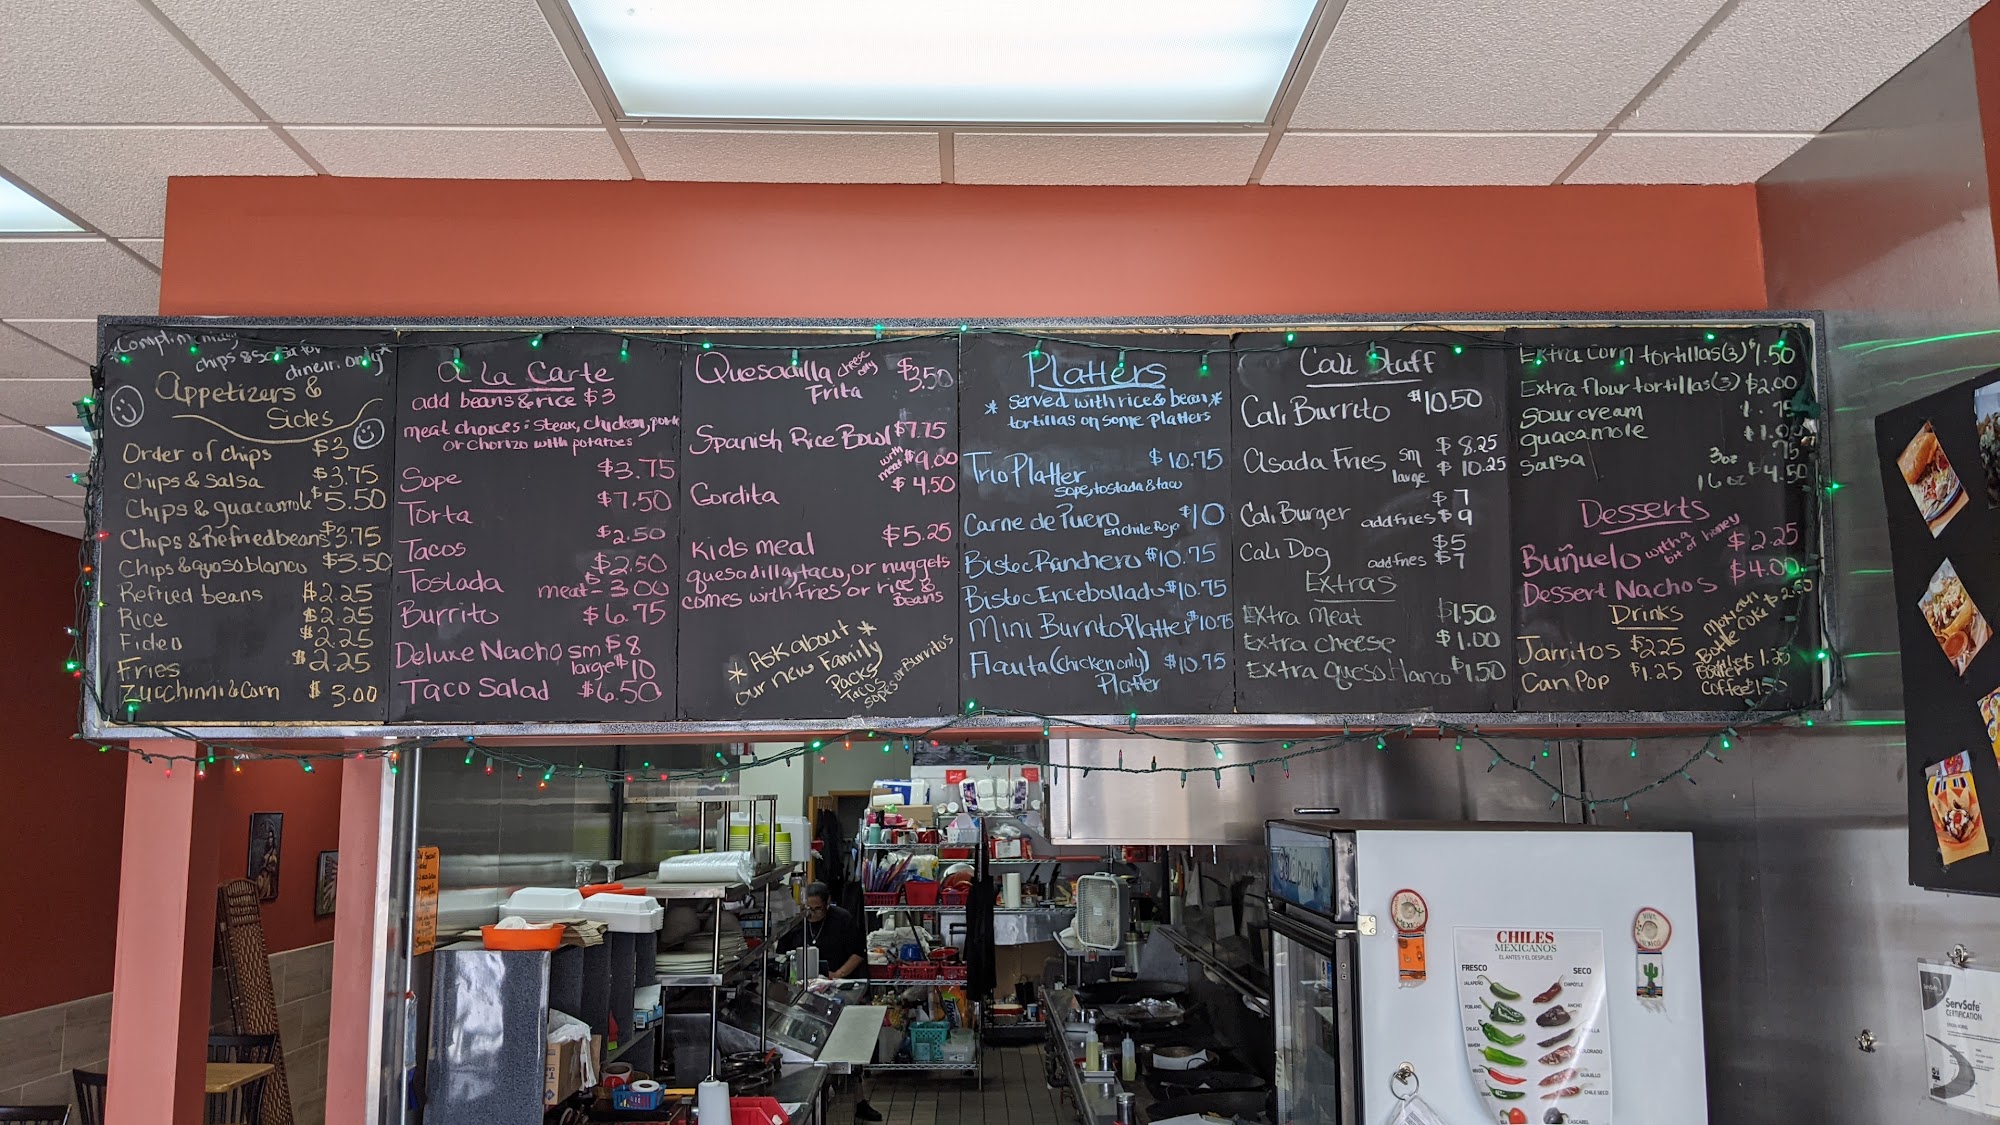 *Complimentary
chips & Salsa for
dinein only*
Appetizers &
Sides
Order of chips $3
Chips & Salsa $3.75
Chips & guacamole $5.50
Chips & Refried beans $3.75
Chips & queso blanco $3.50
Refried beans $2.25
Rice $2.25
Fideo $2.25
Fries $2.25
Zucchinni & Corn $3.00
A La Carte
add beans & rice $3
meat choices: steak, chicken, pork
or chorizo with potatoes
Sope $3.75
Torta $7.50
Tacos $2.50
Tostada $2.50
meat- $3.00
Burrito $6.75
Deluxe Nacho sm $8
large $10
Taco Salad $6.50
Quesadilla cheese only $3.50
Frita
Spanish Rice Bowl $7.75
with meat $9.00
Gordita $4.50
Kids meal $5.25
quesadilla, taco, or nuggets
comes with fries or rice &
Beans
*Ask about*
our new Family
Packs
Tacos
sopes or Burritos
Platters
* served with rice & bean *
tortillas on some platters
Trio Platter $10.75
sope, tostada & taco
Carne de Puero $10
En chile Rojo
Bistec Ranchero $10.75
Bistec Encebollado $10.75
Mini Burrito Platter $10.75
Flauta (chicken only) $10.75
Platter
Cali Staff
Cali Burrito $10.50
Asada Fries sm $8.25
large $10.25
Cali Burger $7
add fries $9
Cali Dog $5
add fries $7
Extras
Extra meat $1.50
Extra cheese $1.00
Extra Queso blanco $1.50
Extra corn tortillas (3) $1.50
Extra flour tortillas (3) $2.00
Sour cream .75
guacamole $1.00
Salsa 3oz .75
16oz $4.50
Desserts
Buñuelo with a bit of honey $2.25
Dessert Nachos $4.00
Drinks
Jarritos $2.25
Can Pop $1.25
Mexican
Bottle Coke $2.50
Bottle $1.25
Coffee $1.50
Drinks
CHILES
MEXICANOS
EL ANTES Y EL DESPUÉS
FRESCO SECO
JALAPEÑO CHIPOTLE
POBLANO ANCHO
CHILACA
GUAJILLO
CHILE SECO
CASCABEL
MEXICO
ServSafe
CERTIFICATION